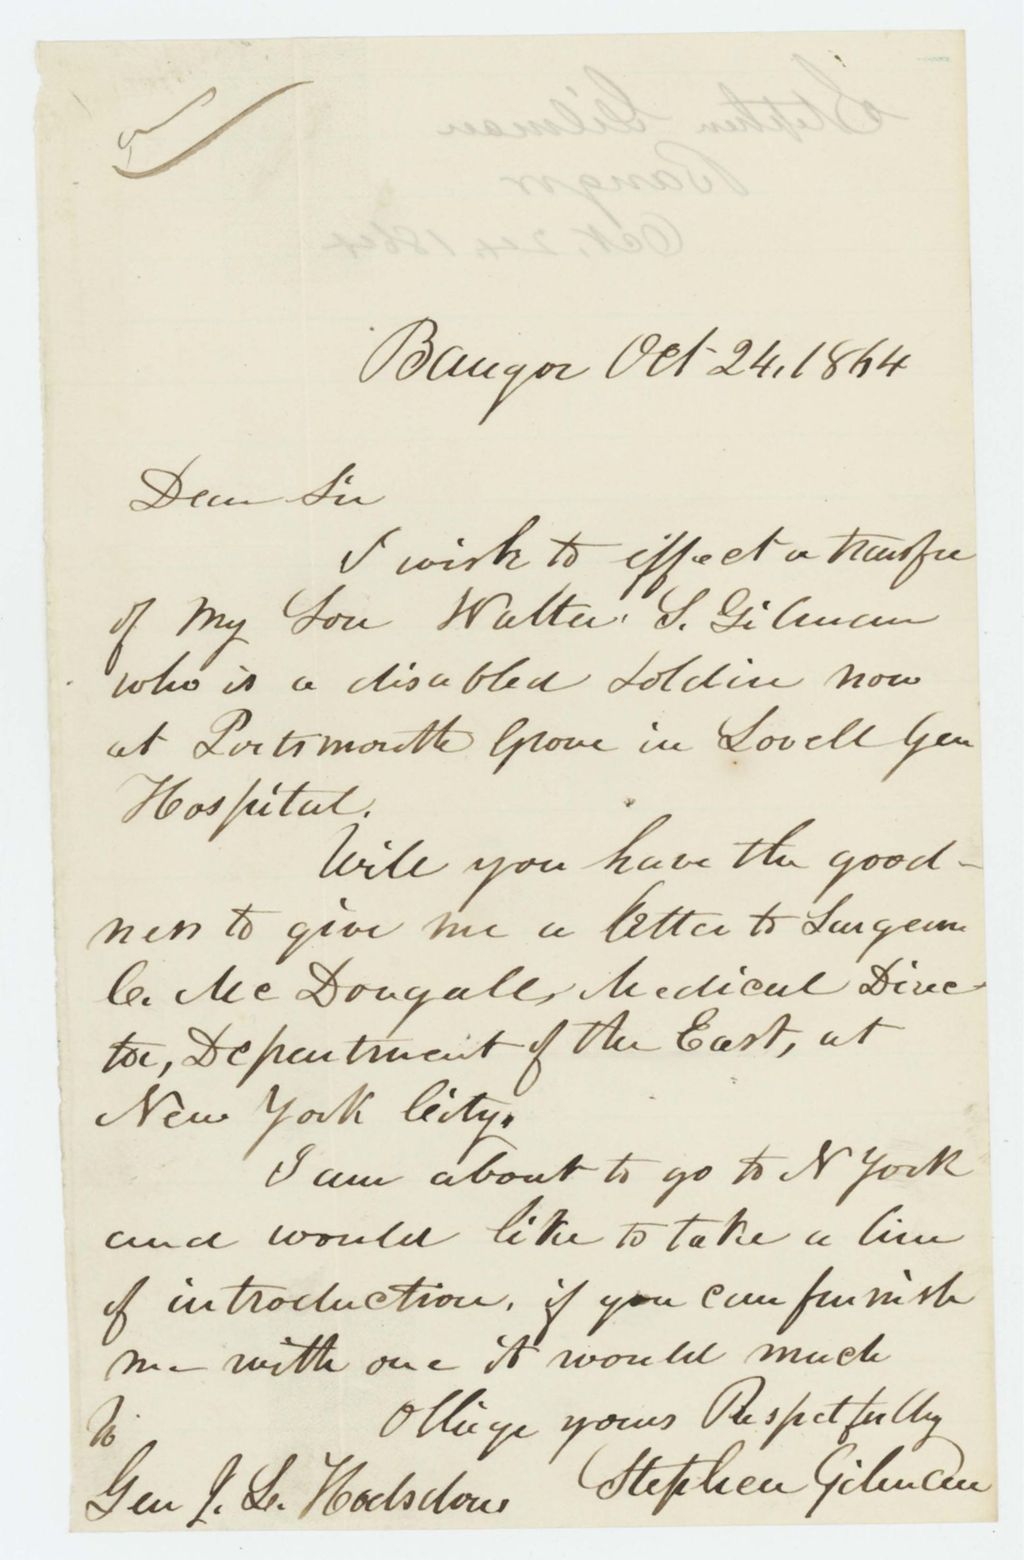 Stephen Gilman
Bangor
Oct. 24, 1864
Bangor Oct 24, 1864
Dear Sir
I wish to effect a transfer
of my Son Walter S. Gilman
who is a disabled soldier now
at Portsmouth Grove in Lovell Gen
Hospital.
Will you have the good-
ness to give me a letter to Surgeon
C. McDougall, Medical Direc-
tor, Department of the East, at
New York City.
I am about to go to N York
and would like to take a line
of introduction. if you can furnish
me with one it would much
Oblige yours Respetfully
Stephen Gilman
To
Gen J. L. Hodsdon